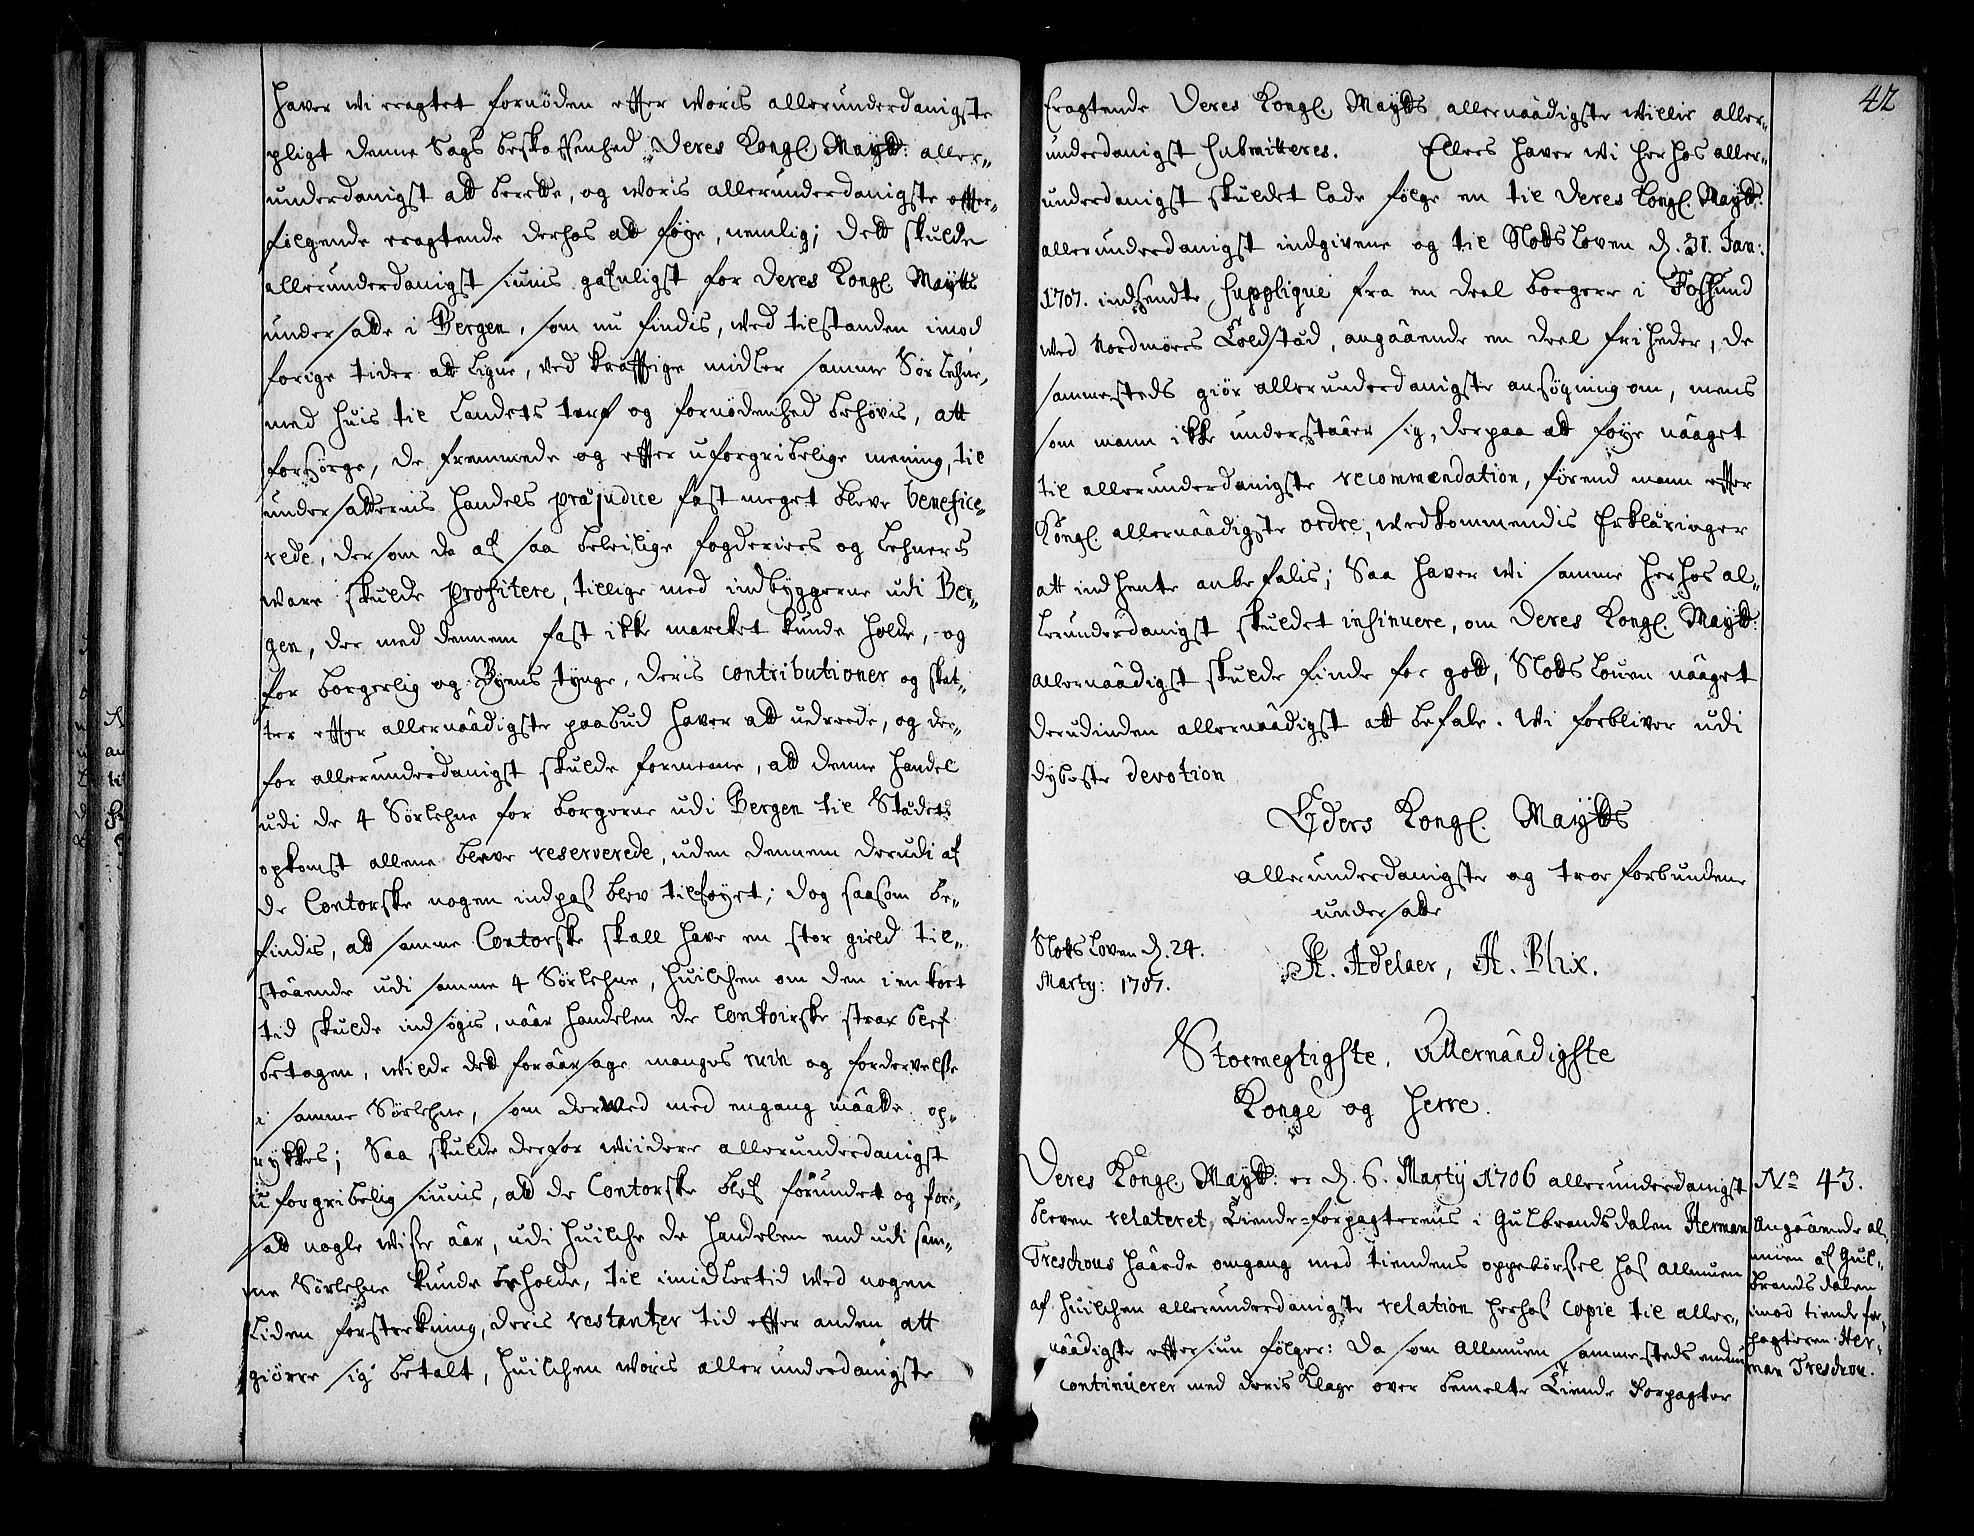 haver wi eragtet fornöden effter woris allerunderdanigste
pligt denne Sags beskaffenhed Deres Kongl. Maytt: aller-
underdanigst att berette, og woris allerunderdanigste effter-
følgende eragtende derhos att føye, nemlig; Dett skulde
allerunderdanigst siunis gafnligst for Deres Kongl. Maytts
undersatte i Bergen, som nu findis, wed tilstanden imod
forige tider att ligne, ved kräfftige midler samme Sörlehne,
med huis til Landets tarf og fornødenhed behövis, att
forsörge, de fremmede og effter uforgribelige mening, til
undersatternis handels præjudice fast meget bleve benefice-
rede, dersom de af saa beleilige fogderiers og Lehners
ware skulde profitere, tillige med indbyggerne udi Ber-
gen, der med dennem fast ikke marcket kunde holde, og
for borgerlig og Byens tynge, deris contributioner og skat-
ter effter allernaadigste paabud haver att udreede, og der-
for allerunderdanigst skulde formeene, att denne handel
udi de 4 Sörlehne for borgerne udi Bergen til Stadets
opkomst alleene bleve reserverede, uden dennem derudi af
de Contorske nogen indpas blev tilføyet; dog saasom be-
findis, att samme Contorske skall have en stor gield til-
staaende udi samme 4 Sörlehne, huilchen om den i en kort
tid skulde indsøgis, naar handelen de Contoirske strax blef
betagen, wilde dett foraarsage manges ruin og fordervelse
i samme Sörlehne, som derwed med engang maatte op-
rykkes; Saa skulde derfor wiidere allerunderdanigst
uforgribelig siunis, att de Contorske blef forundet og fore-
satt nogle wisse aar, udi huilche de handelen end udi sam-
me Sörlehne kunde beholde, til imidlertid wed nogen
Liden forsterkning, deris restantzer tid effter anden att
giörre sig betalt, huilchen woris allerunderdanigste
42
Eragtende Deres Kongl. Maytts allernaadigste willie aller-
underdanigst submitteres. Ellers haver wi herhos aller-
underdanigst skuldet lade følge en til Deres Kongl. Maytt:
allerunderdanigst indgivene og til Slotts Loven d. 31. Jan:
1707. indsendte Supplique fra en deel borgere i Fossund
wed Nordmörs Toldstæd, angaaende en deel friheder, de
sammesteds giör allerunderdanigste ansøgning om, mens
som mann ikke understaaer sig, derpaa att føye naaget
til allerunderdanigste recommendation, førend mann effter
Kongl. allernaadigste ordre, wedkommendis Erklæringer
att indhente anbefalis; Saa haver wi samme herhos al-
lerunderdanigst skuldet insinuere, om Deres Kongl. Maytt:
allernaadigst skulde finde for gott, Slotts Loven naaget
derudinden allernaadigst att befale. Wi forbliver udi
dybeste devotion
Eders Kongl. Maytts
allerunderdanigste og troe forbundene
undersatte
Slotts Loven d. 24.
Martij: 1707.
F. Adelaer, A. Blix.
Stormegtigste, Allernaadigste
Konge og Herre.
Deres Kongl. Maytt: er d. 6. Martij 1706 allerunderdanigst
bleven relateret, Tiende-forpagterens i Gulbrandsdalen Herman
Treschous haarde omgang med tiendens oppebörsel hos Allmuen
af huilchen allerunderdanigste relation herhos copie til aller-
naadigste effter siun følger: Da som Allmuen sammesteds endnu
continuerer med deris Klage over bemelte Tiende Forpagter
No 43.
Angaaende al-
muen af Gul-
brandsdalen
imod tiende for-
pagteren Her-
man Treschou.